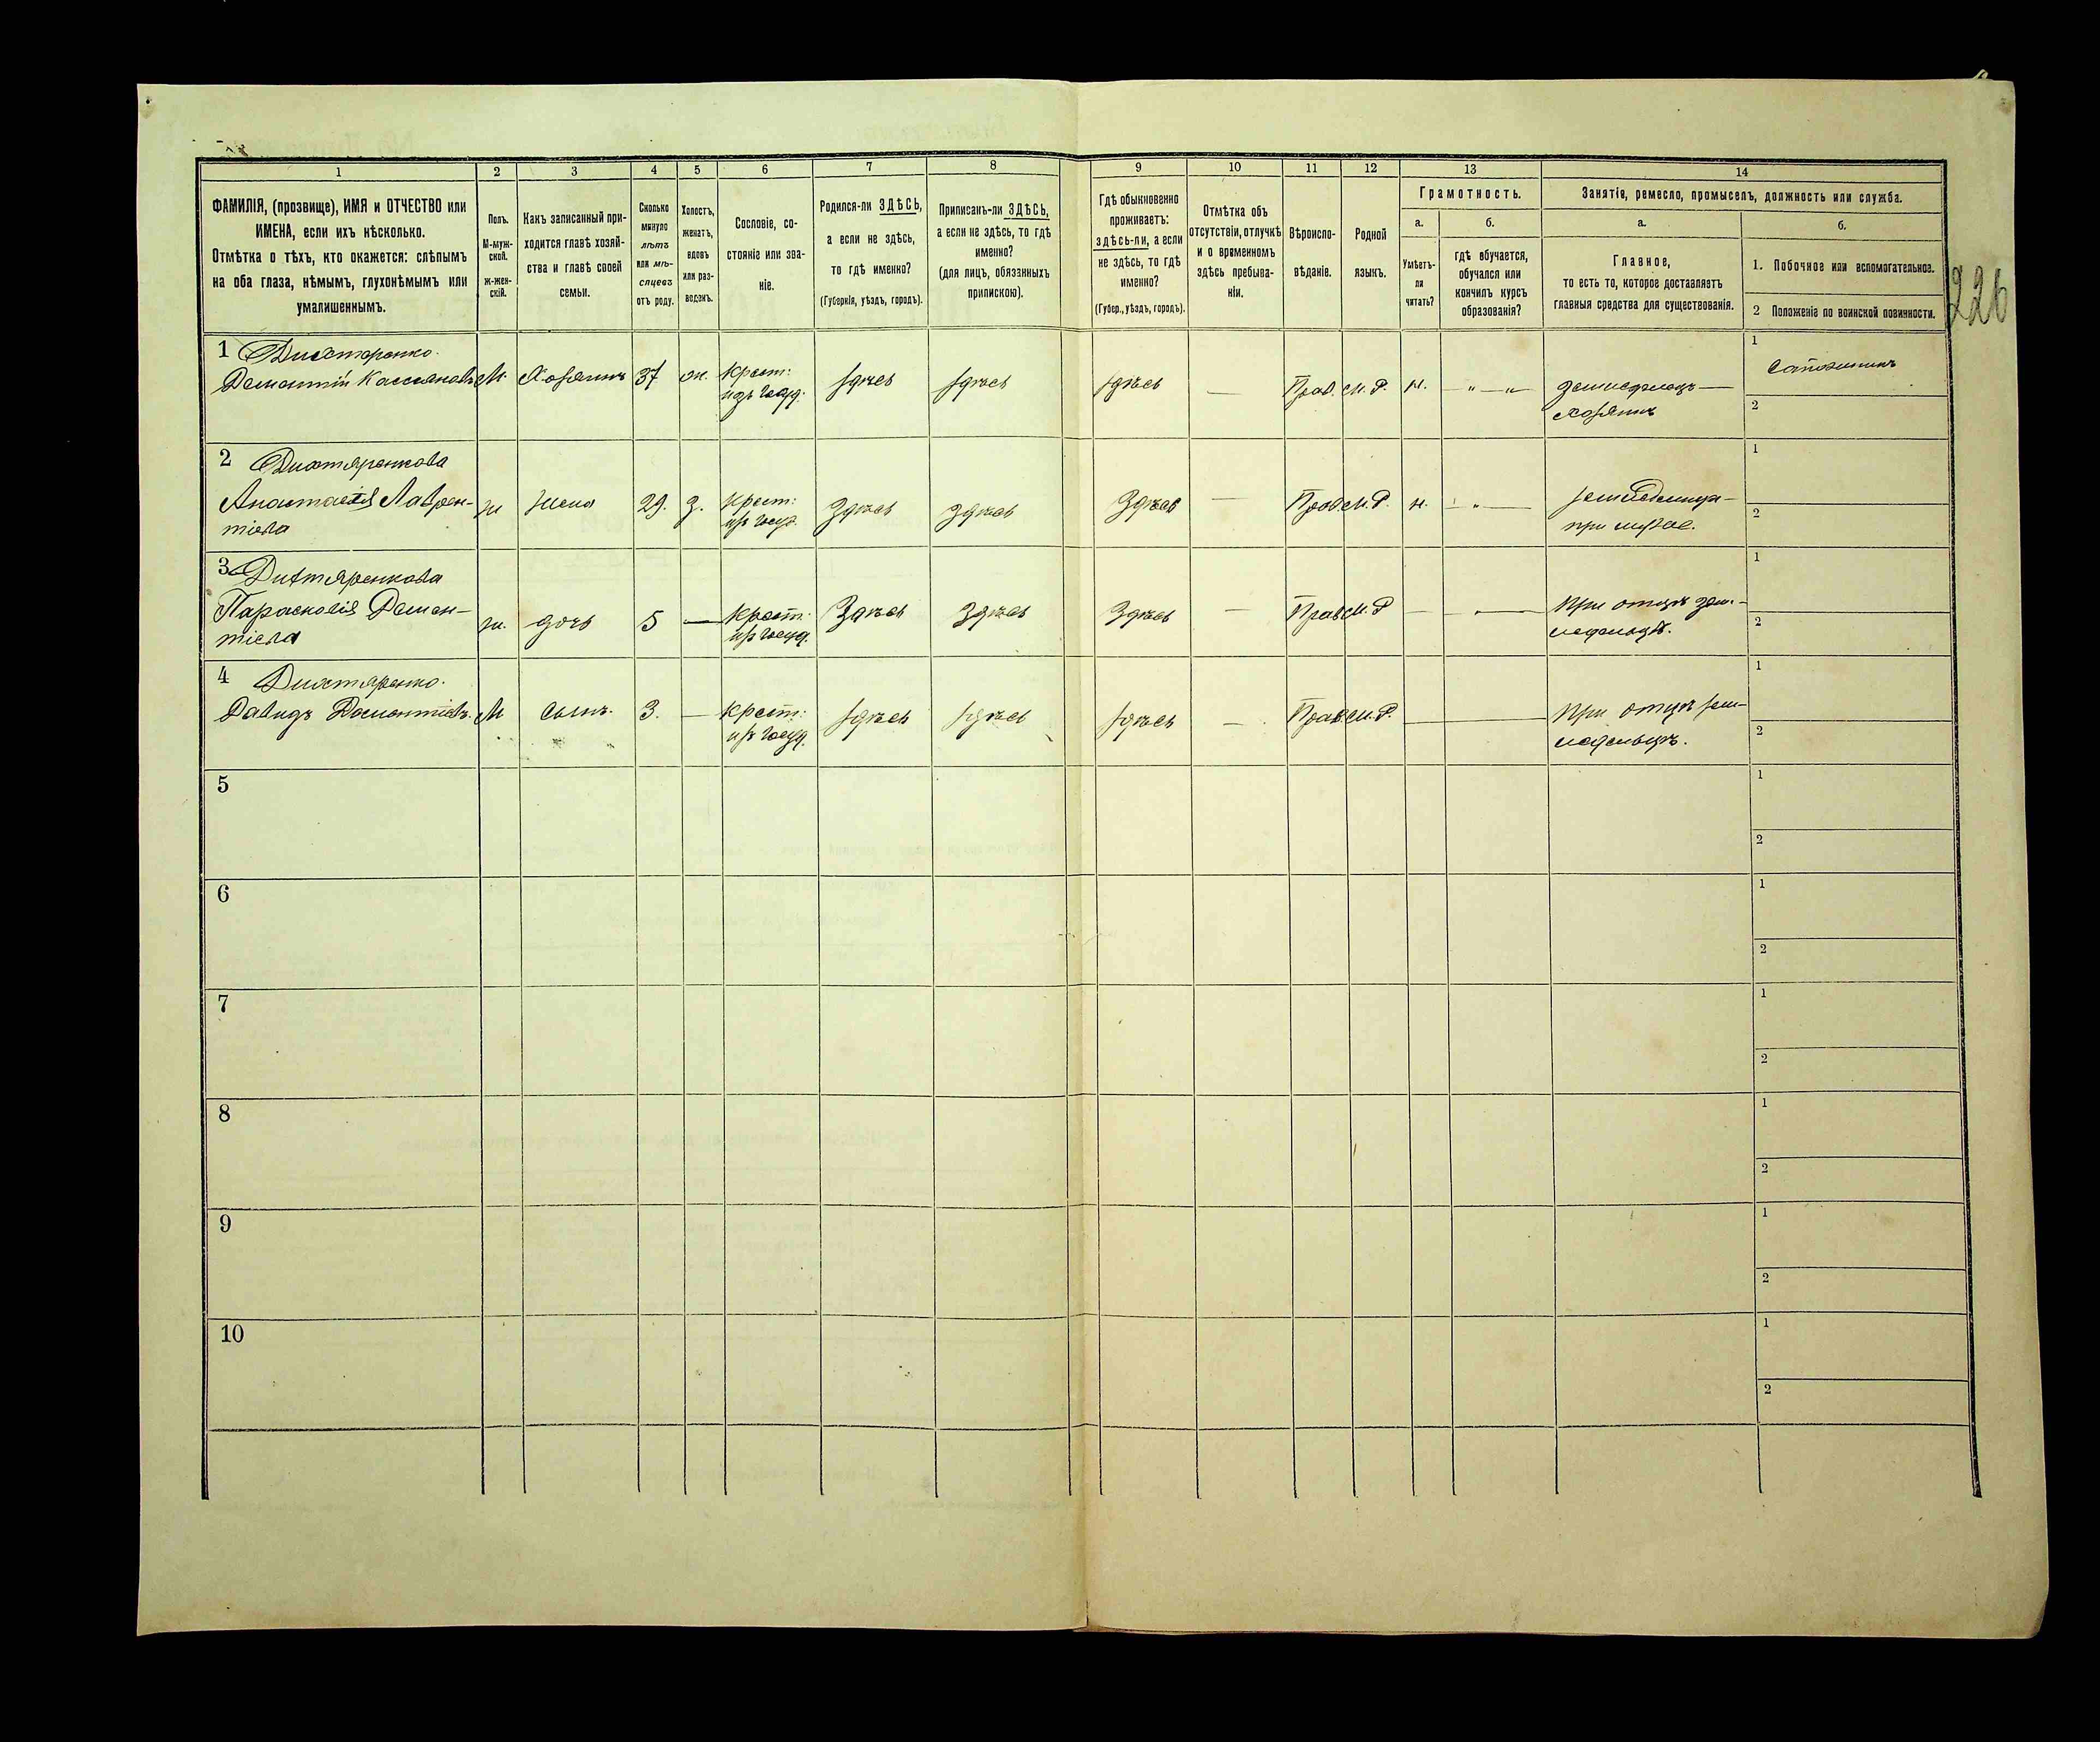 226
1
2
3
4
5
6
7
8
9
10
11
12
13
14
ФАМИЛІЯ, (прозвище), ИМЯ и ОТЧЕСТВО или
ИМЕНА, если ихъ нѣсколько.
Отмѣтка о тѣхъ, кто окажется: слѣпымъ
на оба глаза, нѣмымъ, глухонѣмымъ или
умалишеннымъ.
Полъ.
М-муж-
ской.
ж-жен-
скій.
Какъ записанный при-
ходится главѣ хозяй-
ства и главѣ своей
семьи.
Сколько
минуло
лѣтъ
или мѣ-
сяцевъ
отъ роду.
Холостъ,
женатъ,
вдовъ
или раз-
веденъ.
Сословіе, со-
стояніе или зва-
ніе.
Родился-ли ЗДѢСЬ,
а если не здѣсь,
то гдѣ именно?
(Губернія, уѣздъ, городъ).
Приписанъ-ли ЗДѢСЬ,
а если не здѣсь, то гдѣ
именно?
(для лицъ, обязанныхъ
припискою).
Гдѣ обыкновенно
проживаетъ:
здѣсь-ли, а если
не здѣсь, то гдѣ
именно?
(Губер., уѣздъ, городъ).
Отмѣтка объ
отсутствіи, отлучкѣ
и о временномъ
здѣсь пребыва-
ніи.
Вѣроиспо-
вѣданіе.
Родной
языкъ.
Грамотность.
а.
Умѣетъ-
ли
читать?
б.
гдѣ обучается,
обучался или
кончилъ курсъ
образованія?
Занятіе, ремесло, промыселъ, должность или служба.
а.
Главное,
то есть то, которое доставляетъ
главныя средства для существованія.
б.
1. Побочное или вспомогательное.
2 Положеніе по воинской повинности.
1 Дихтяренко.
Дементій Кассьяновъ
М.
Хозяинъ
37
ж.
крест:
изъ госуд.
здѣсь
здѣсь
здѣсь
—
Прав.
М.Р.
н.
„ — „
земледѣлецъ —
хозяинъ
1
Сапожникъ
2
2 Дихтяренкова
Анастасія Лаврен-
тіева
ж
жена
29.
З.
крест:
изъ госуд.
Здѣсь
здѣсь
Здѣсь
—
Прав
М.Р.
н.
— „ —
земледѣлица —
при мужѣ.
1
2
3 Дихтяренкова
Парасковія Демен-
тіева
ж.
дочь
5
—
крест:
изъ госуд.
Здѣсь
здѣсь
Здѣсь
—
Прав
М.Р
—
— „ —
при отцѣ зем-
ледѣльцѣ.
1
2
4 Дихтяренко.
Давидъ Дементіевъ.
М
сынъ.
3.
—
крест:
изъ госуд.
здѣсь
здѣсь
здѣсь
—
Прав
М.Р.
—
при отцѣ зем-
ледѣльцѣ.
1
2
5
1
2
6
1
2
7
1
2
8
1
2
9
1
2
10
1
2